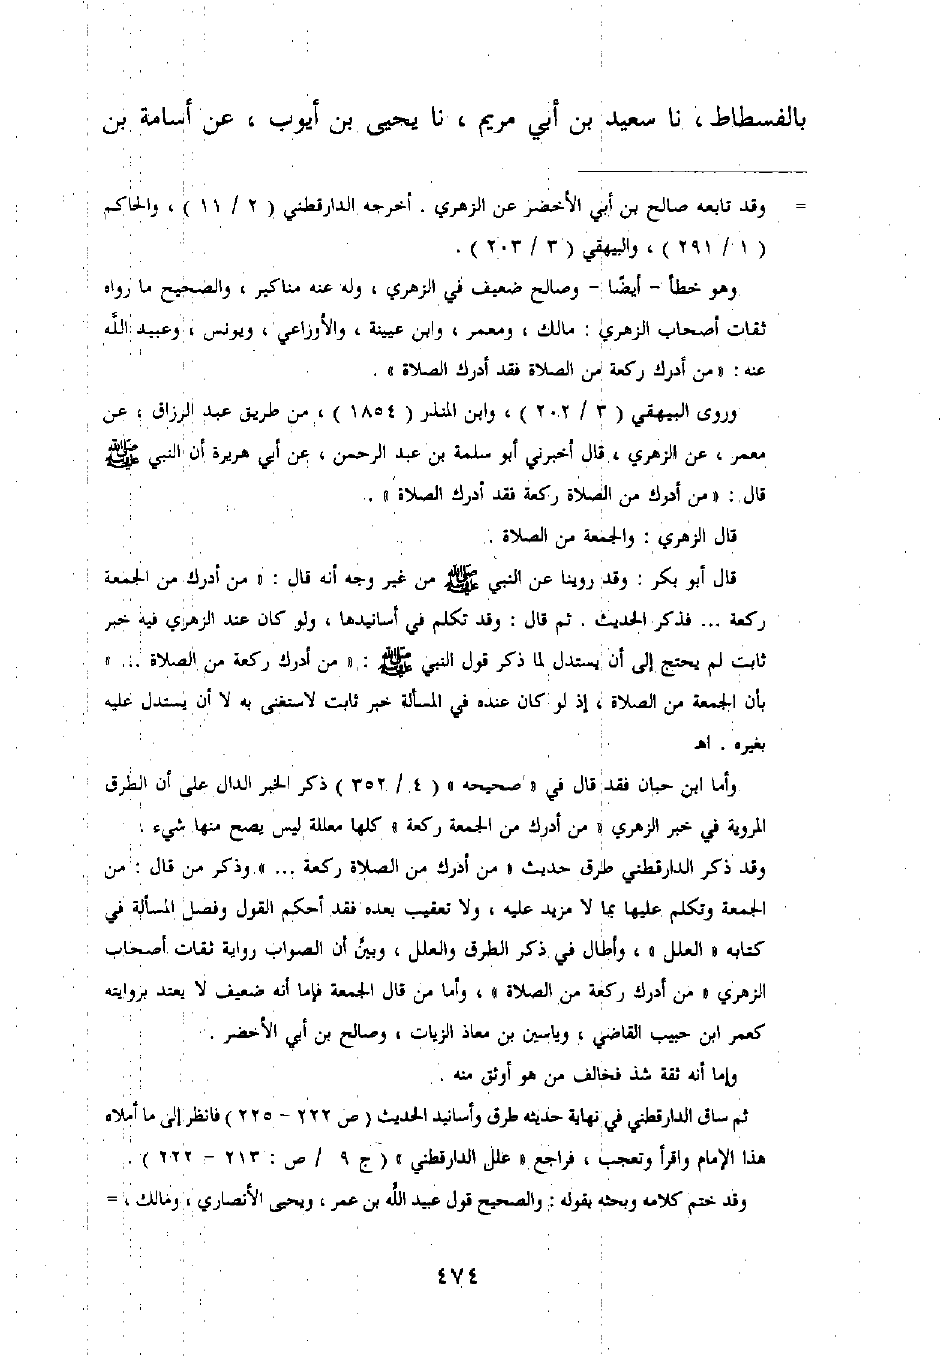 بالفسطاط ، نا سعيد بن أبي مريم ، نا يحيى بن أيوب ، عن أسامة بن
= وقد تابعه صالح بن أبي الأخضر عن الزهري . أخرجه الدارقطني ( ٢ / ١١ ) ، والحاكم
( ١ / ٢٩١ ) ، والبيهقي ( ٣ / ٢٠٣ ) .
وهو خطأ - أيضًا - وصالح ضعيف في الزهري ، وله عنه مناكير ، والصحيح ما رواه
ثقات أصحاب الزهري : مالك ، ومعمر ، وابن عيينة ، والأوزاعي ، ويونس ، وعبيد اللَّه
عنه : « من أدرك ركعة من الصلاة فقد أدرك الصلاة » .
وروى البيهقي ( ٣ / ٢٠٢ ) ، وابن المنذر ( ١٨٥٤ ) ، من طريق عبد الرزاق ، عن
معمر ، عن الزهري ، قال أخبرني أبو سلمة بن عبد الرحمن ، عن أبي هريرة أن النبي ﷺ
قال : « من أدرك من الصلاة ركعة فقد أدرك الصلاة » .
قال الزهري : والجمعة من الصلاة .
قال أبو بكر : وقد روينا عن النبي ﷺ من غير وجه أنه قال : « من أدرك من الجمعة
ركعة ... فذكر الحديث . ثم قال : وقد تكلم في أسانيدها ، ولو كان عند الزهري فيه خبر
ثابت لم يحتج إلى أن يستدل لما ذكر قول النبي ﷺ : « من أدرك ركعة من الصلاة ... »
بأن الجمعة من الصلاة ، إذ لو كان عنده في المسألة خبر ثابت لاستغنى به لا أن يستدل عليه
بغيره . اهـ
وأما ابن حبان فقد قال في « صحيحه » ( ٤ / ٣٥٢ ) ذكر الخبر الدال على أن الطرق
المروية في خبر الزهري « من أدرك من الجمعة ركعة » كلها معللة ليس يصح منها شيء .
وقد ذكر الدارقطني طرق حديث « من أدرك من الصلاة ركعة ... » وذكر من قال : من
الجمعة وتكلم عليها بما لا مزيد عليه ، ولا تعقيب بعده فقد أحكم القول وفصل المسألة في
كتابه « العلل » ، وأطال في ذكر الطرق والعلل ، وبينَّ أن الصواب رواية ثقات أصحاب
الزهري « من أدرك ركعة من الصلاة » ، وأما من قال الجمعة فإما أنه ضعيف لا يعتد بروايته
كعمر ابن حبيب القاضي ، وياسين بن معاذ الزيات ، وصالح بن أبي الأخضر .
وإما أنه ثقة شذ فخالف من هو أوثق منه .
ثم ساق الدارقطني في نهاية حديثه طرق وأسانيد الحديث ( ص ٢٢٢ - ٢٢٥ ) فانظر إلى ما أملاه
هذا الإمام واقرأ وتعجب ، فراجع « علل الدارقطني » ( ج ٩ / ص : ٢١٣ - ٢٢٢ ) .
وقد ختم كلامه وبحثه بقوله : والصحيح قول عبيد اللَّه بن عمر ، ويحيى الأنصاري ، ومالك ، =
٤٧٤